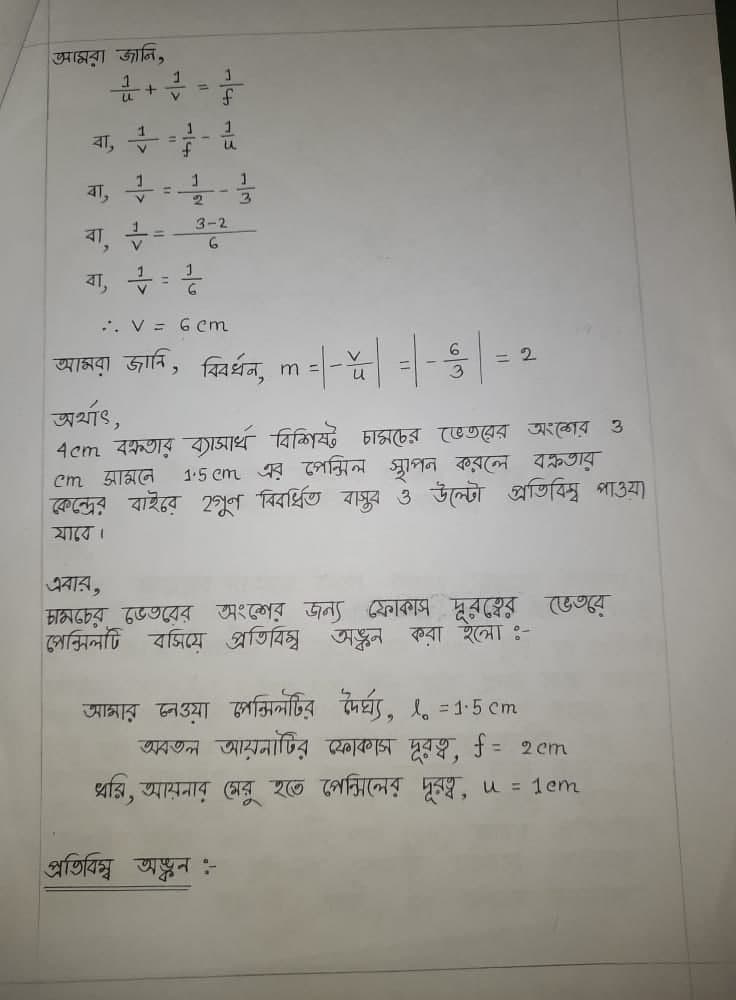 আমরা জানি,
1/u + 1/v = 1/f
বা, 1/v = 1/f - 1/u
বা, 1/v = 1/2 - 1/3
বা, 1/v = 3-2/6
বা, 1/v = 1/6
∴ v = 6 cm
আমরা জানি, বিবর্ধন, m = |-v/u| = |-6/3| = 2
অর্থাৎ,
4cm বক্রতার ব্যাসার্ধ বিশিষ্ট চামচের ভেতরের অংশের 3
cm সামনে 1.5 cm এর পেন্সিল স্থাপন করলে বক্রতার
কেন্দ্রের বাইরে 2গুন বিবর্ধিত বাস্তব ও উল্টো প্রতিবিম্ব পাওয়া
যাবে।
এবার,
চামচের ভেতরের অংশের জন্য ফোকাস দূরত্বের ভেতরে
পেন্সিলটি বসিয়ে প্রতিবিম্ব অঙ্কন করা হলো :-
আমার নেওয়া পেন্সিলটির দৈর্ঘ্য, l₀ = 1.5 cm
অবতল আয়নাটির ফোকাস দূরত্ব, f = 2cm
ধরি, আয়নার মেরু হতে পেন্সিলের দূরত্ব, u = 1cm
প্রতিবিম্ব অঙ্কন :-